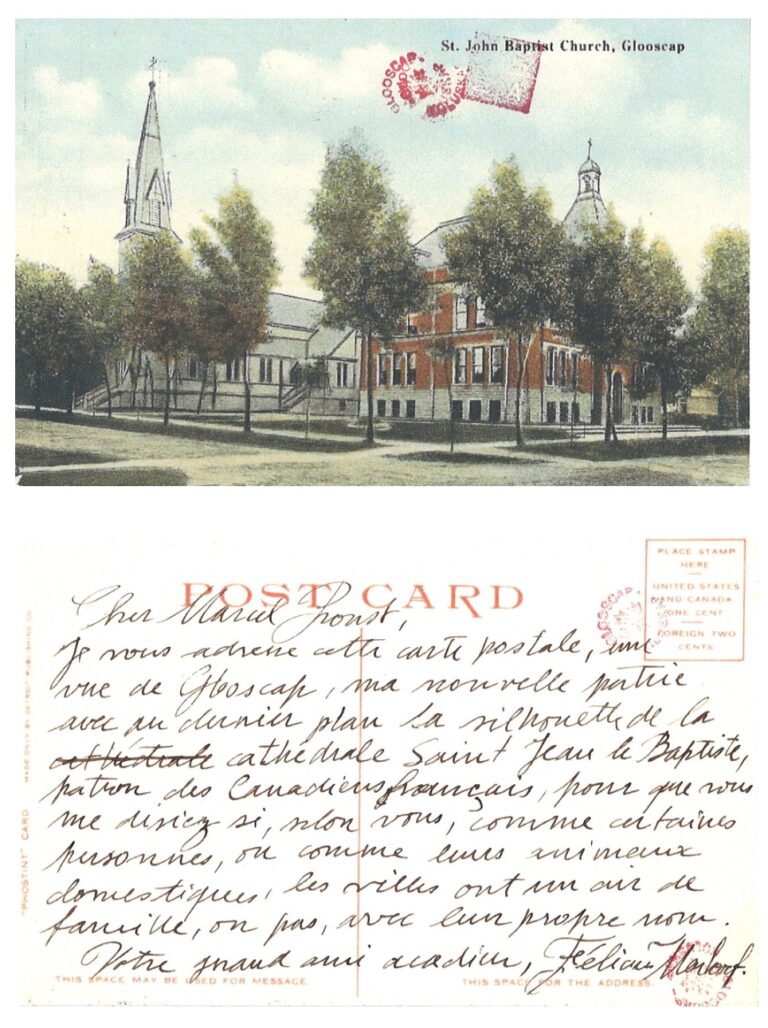 St. John Baptist Church, Glooscap
GLOOSCAP
POST CARD
PLACE STAMP
HERE
UNITED STATES
AND CANADA
ONE CENT
FOREIGN TWO
CENTS
GLOOSCAP
Cher Marcel Proust,
Je vous adresse cette carte postale, une
vue de Glooscap, ma nouvelle patrie
avec au dernier plan la silhouette de la
cathédrale cathédrale Saint Jean le Baptiste,
patron des Canadiens français, pour que vous
me disiez si, selon vous, comme certaines
personnes, ou comme leurs animaux
domestiques, les villes ont un air de
famille, ou pas, avec leur propre nom.
Votre grand ami acadien, Félicien Marboeuf.
"PHOSTINT" CARD MADE ONLY BY DETROIT PUBLISHING CO.
THIS SPACE MAY BE USED FOR MESSAGE.
THIS SPACE FOR THE ADDRESS.